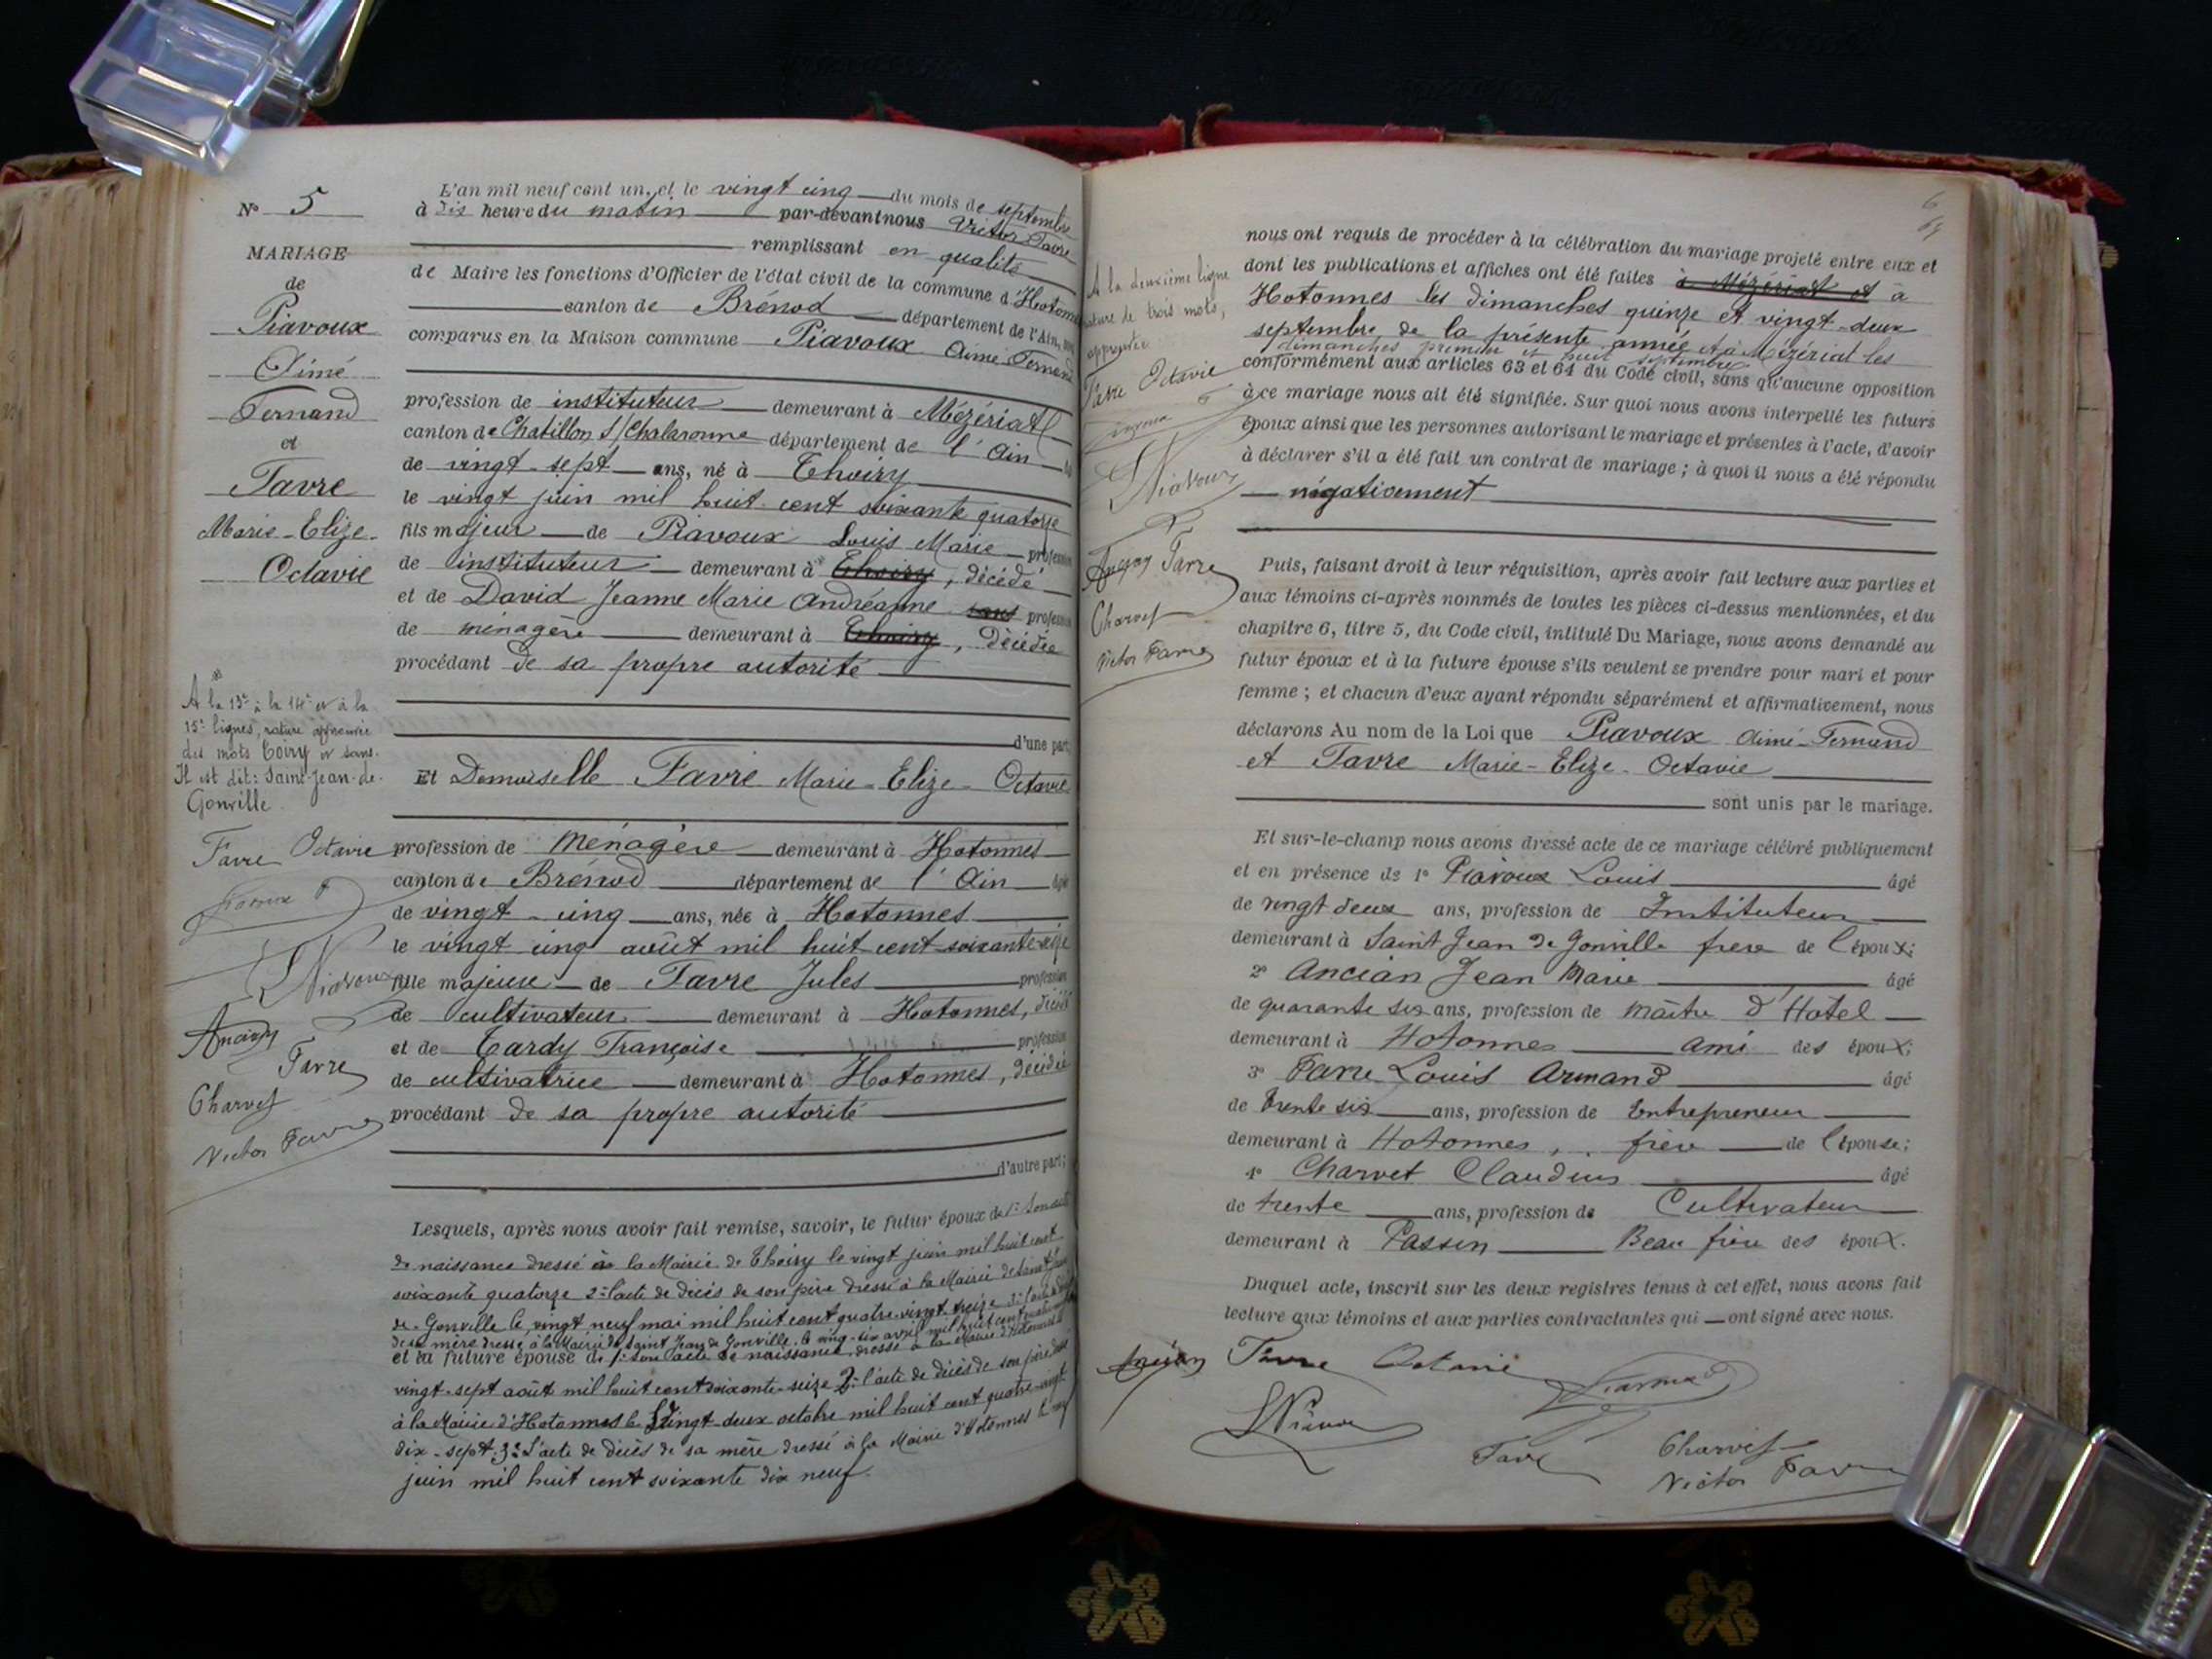 N° 5
MARIAGE
de
Piavoux
Aimé
Fernand
et
Favre
Marie-Elize-
Octavie
A la 13e à la 14e et à la
15e lignes, rature approuvée
des mots Coiry et sans.
Il est dit: Saint-Jean-de-
Gonville.
Favre Octavie
Piavoux
Piavoux
Ancian
Favre
Charvet
Victor Favre
L'an mil neuf cent un, et le vingt cinq du mois de septembre
à dix heure du matin par-devant nous Victor Favre
remplissant en qualité
de Maire les fonctions d'Officier de l'état civil de la commune d'Hotonnes
canton de Brénod département de l'Ain,
comparus en la Maison commune Piavoux Aimé Fernand
profession de instituteur demeurant à Mézériat
canton de Chatillon s/Chalaronne département de l'Ain
de vingt-sept ans, né à Thoiry
le vingt juin mil huit cent soixante quatorze
fils majeur de Piavoux Louis Marie profession
de instituteur demeurant à Thoiry, décédé
et de David Jeanne Marie Andréanne sans profession
de ménagère demeurant à Thoiry, décédée
procédant de sa propre autorité
d'une part;
Et Demoiselle Favre Marie-Elize-Octavie
profession de Ménagère demeurant à Hotonnes
canton de Brénod département de l'Ain âgée
de vingt-cinq ans, née à Hotonnes
le vingt cinq août mil huit cent soixante-seize
fille majeure de Favre Jules profession
de cultivateur demeurant à Hotonnes, décédé
et de Tardy Françoise profession
de cultivatrice demeurant à Hotonnes, décédée
procédant de sa propre autorité
d'autre part;
Lesquels, après nous avoir fait remise, savoir, le futur époux de 1° Son acte
de naissance dressé à la Mairie de Thoiry le vingt juin mil huit cent
soixante quatorze 2° l'acte de décès de son père dressé à la Mairie de Saint Jean
de-Gonville le vingt neuf mai mil huit cent quatre-vingt treize 3° l'acte de décès
de sa mère dressé à la Mairie de Saint Jean de Gonville, le vingt-six avril mil huit cent
et la future épouse de 1° son acte de naissance, dressé à la Mairie d'Hotonnes le
vingt-sept août mil huit cent soixante-seize 2° l'acte de décès de son père dressé
à la Mairie d'Hotonnes le vingt-deux octobre mil huit cent quatre-vingt
dix-sept 3° L'acte de décès de sa mère dressé à la Mairie d'Hotonnes le
juin mil huit cent soixante dix neuf.
6
A la deuxième ligne
rature de trois mots,
approuvée
Favre Octavie
Piavoux
Ancian Favre
Charvet
Victor Favre
nous ont requis de procéder à la célébration du mariage projeté entre eux et
dont les publications et affiches ont été faites à Mézériat et à
Hotonnes les dimanches quinze et vingt-deux
septembre de la présente année et à Mézériat les
dimanches premier et huit septembre
conformément aux articles 63 et 64 du Code civil, sans qu'aucune opposition
à ce mariage nous ait été signifiée. Sur quoi nous avons interpellé les futurs
époux ainsi que les personnes autorisant le mariage et présentes à l'acte, d'avoir
à déclarer s'il a été fait un contrat de mariage; à quoi il nous a été répondu
négativement
Puis, faisant droit à leur réquisition, après avoir fait lecture aux parties et
aux témoins ci-après nommés de toutes les pièces ci-dessus mentionnées, et du
chapitre 6, titre 5, du Code civil, intitulé Du Mariage, nous avons demandé au
futur époux et à la future épouse s'ils veulent se prendre pour mari et pour
femme; et chacun d'eux ayant répondu séparément et affirmativement, nous
déclarons Au nom de la Loi que Piavoux Aimé-Fernand
et Favre Marie-Elize-Octavie
sont unis par le mariage.
Et sur-le-champ nous avons dressé acte de ce mariage célébré publiquement
et en présence de 1° Piavoux Louis âgé
de vingt deux ans, profession de Instituteur
demeurant à Saint Jean de Gonville frère de l'époux;
2° Ancian Jean Marie âgé
de quarante six ans, profession de Maître d'Hotel
demeurant à Hotonnes ami des époux;
3° Favre Louis Armand âgé
de trente six ans, profession de Entrepreneur
demeurant à Hotonnes, frère de l'épouse;
4° Charvet Claudius âgé
de trente ans, profession de Cultivateur
demeurant à Passin Beau frère des époux.
Duquel acte, inscrit sur les deux registres tenus à cet effet, nous avons fait
lecture aux témoins et aux parties contractantes qui ont signé avec nous.
Ancian Favre Octavie Piavoux
Piavoux
Favre
Charvet
Victor Favre